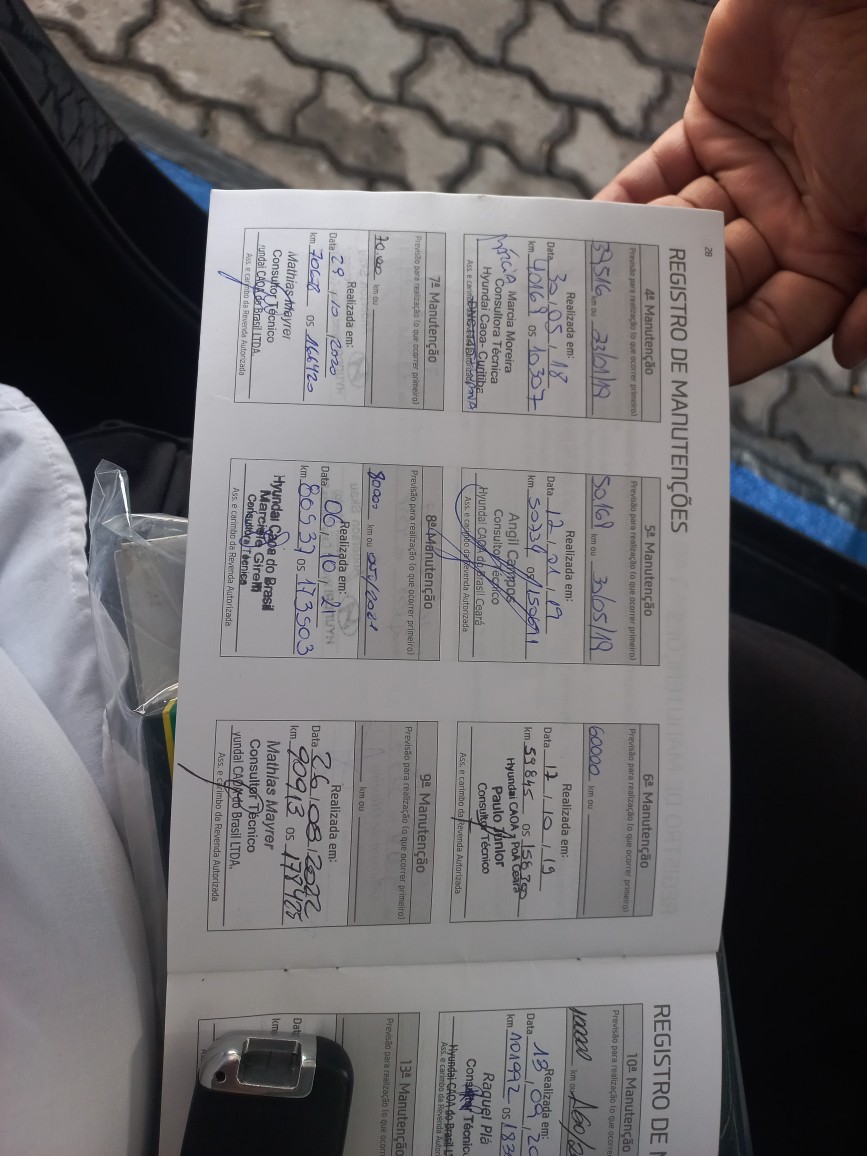 28
REGISTRO DE MANUTENÇÕES
4ª Manutenção
Previsão para realização (o que ocorrer primeiro)
39516 km ou 23/01/19
Realizada em:
Data 30, 05, 18
km 40169 OS 10307
Marcia Marcia Moreira
Consultora Técnica
Hyundai Caoa- Curitiba
Ass. e carimbo
5ª Manutenção
Previsão para realização (o que ocorrer primeiro)
50169 km ou 30/05/19
Realizada em:
Data 12, 01, 19
km 50234 OS
Angil Campos
Consultor Técnico
Hyundai CAOA do Brasil Ceará
Ass. e carimbo da Revenda Autorizada
6ª Manutenção
Previsão para realização (o que ocorrer primeiro)
60000 km ou
Realizada em:
Data 17, 10, 19
km 59845 OS
Hyundai CAOA
Paulo Junior
Consultor Técnico
Ass. e carimbo da Revenda Autorizada
7ª Manutenção
Previsão para realização (o que ocorrer primeiro)
km ou
Realizada em:
Data 29, 10, 2020
km OS 166420
Mathias Mayrer
Consultor Técnico
yundai CAOA do Brasil LTDA.
Ass. e carimbo da Revenda Autorizada
8ª Manutenção
Previsão para realização (o que ocorrer primeiro)
80000 km ou
Realizada em:
Data 06, 10, 21
km 80537 OS 173503
Hyundai Caoa do Brasil
Consultora Técnica
Ass. e carimbo da Revenda Autorizada
9ª Manutenção
Previsão para realização (o que ocorrer primeiro)
km ou
Realizada em:
Data 26, 08, 2022
km 90913 OS 178425
Mathias Mayrer
Consultor Técnico
yundai CAOA do Brasil LTDA.
Ass. e carimbo da Revenda Autorizada
REGISTRO DE
10ª Manutenção
Previsão para realização (o que ocorrer primeiro)
100000 km ou
Realizada em:
Data 13, 09,
km 101992 OS
Raquel Plá
Hyundai CAOA do Brasil
Ass. e carimbo da Revenda Autorizada
13ª Manutenção
Previsão para realização (o que ocorrer primeiro)
km